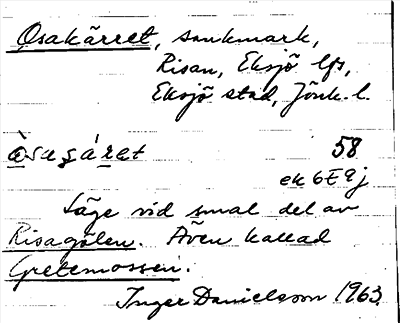 Osakärret, sankmark,
Risan, Eksjö lfs,
Eksjö stad, Jönk. l.
58
ek 6E9j
Läge vid smal del av
Risagölen. Även kallad
Gretemossen.
Inger Danielsson 1963